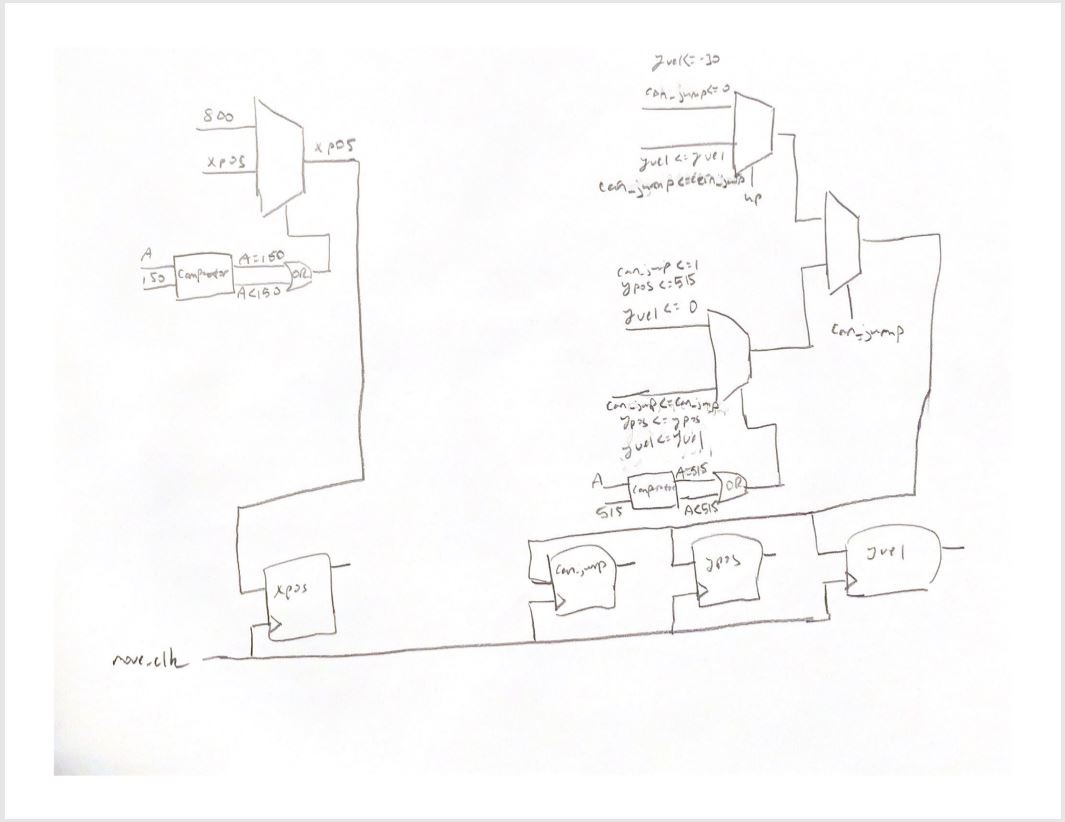 800
xpos
xpos
A
150
Comparator
A=150
A<150
OR
yvel<= -30
can_jump<= 0
yvel <= yvel
can_jump <= can_jump
up
can_jump <= 1
ypos <= 515
yvel <= 0
can_jump
can_jump <= can_jump
ypos <= ypos
yvel <= yvel
A
515
Comparator
A=515
A<515
OR
xpos
can_jump
ypos
yvel
move_clk